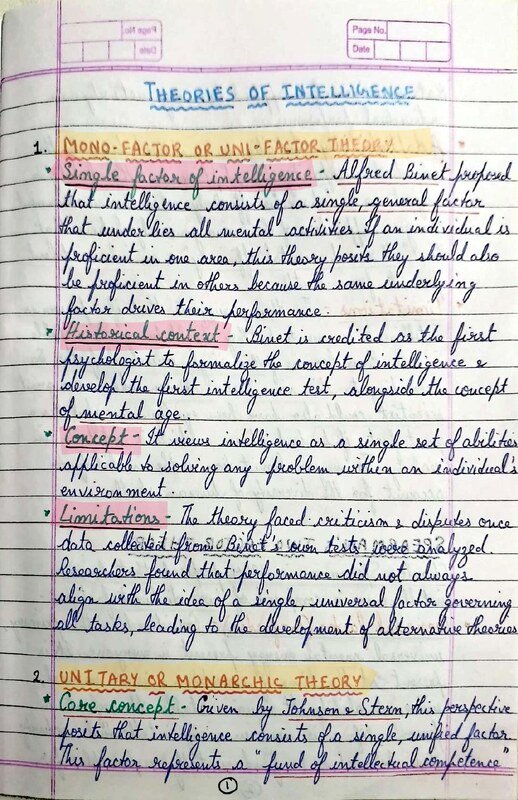 Page No.
Date
THEORIES OF INTELLIGENCE
1. MONO-FACTOR OR UNI-FACTOR THEORY
* Single factor of intelligence - Alfred Binet proposed
that intelligence consists of a single, general factor
that underlies all mental activities If an individual is
proficient in one area, this theory posits they should also
be proficient in others because the same underlying
factor drives their performance.
* Historical context - Binet is credited as the first
psychologist to formalize the concept of intelligence &
develop the first intelligence test, alongside the concept
of mental age.
* Concept - It views intelligence as a single set of abilities
applicable to solving any problem within an individual's
environment.
* Limitations - The theory faced criticism & disputes once
data collected from Binet's own tests were analyzed.
Researchers found that performance did not always
align with the idea of a single, universal factor governing
all tasks, leading to the development of alternative theories
2. UNITARY OR MONARCHIC THEORY
* Core concept - Given by Johnson & Stern, this perspective
posits that intelligence consists of a single, unified factor
This factor represents a "fund of intellectual competence"
1